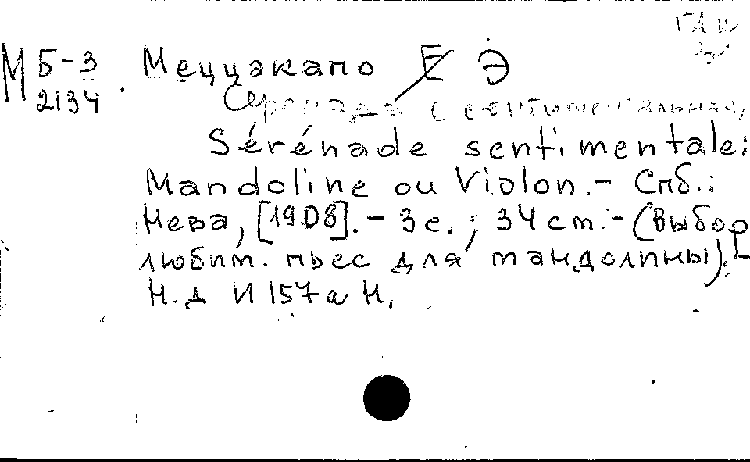 М Б-3
2134
Меццакапо Е Э
Серенада сентиментальная
Sérénade sentimentale:
Mandoline ou Violon. – Спб.:
Нева, [1908]. – 3 с.; 34 см. – (Выбор
любим. пьес для мандолины). –
Н.д И 157 а Н.